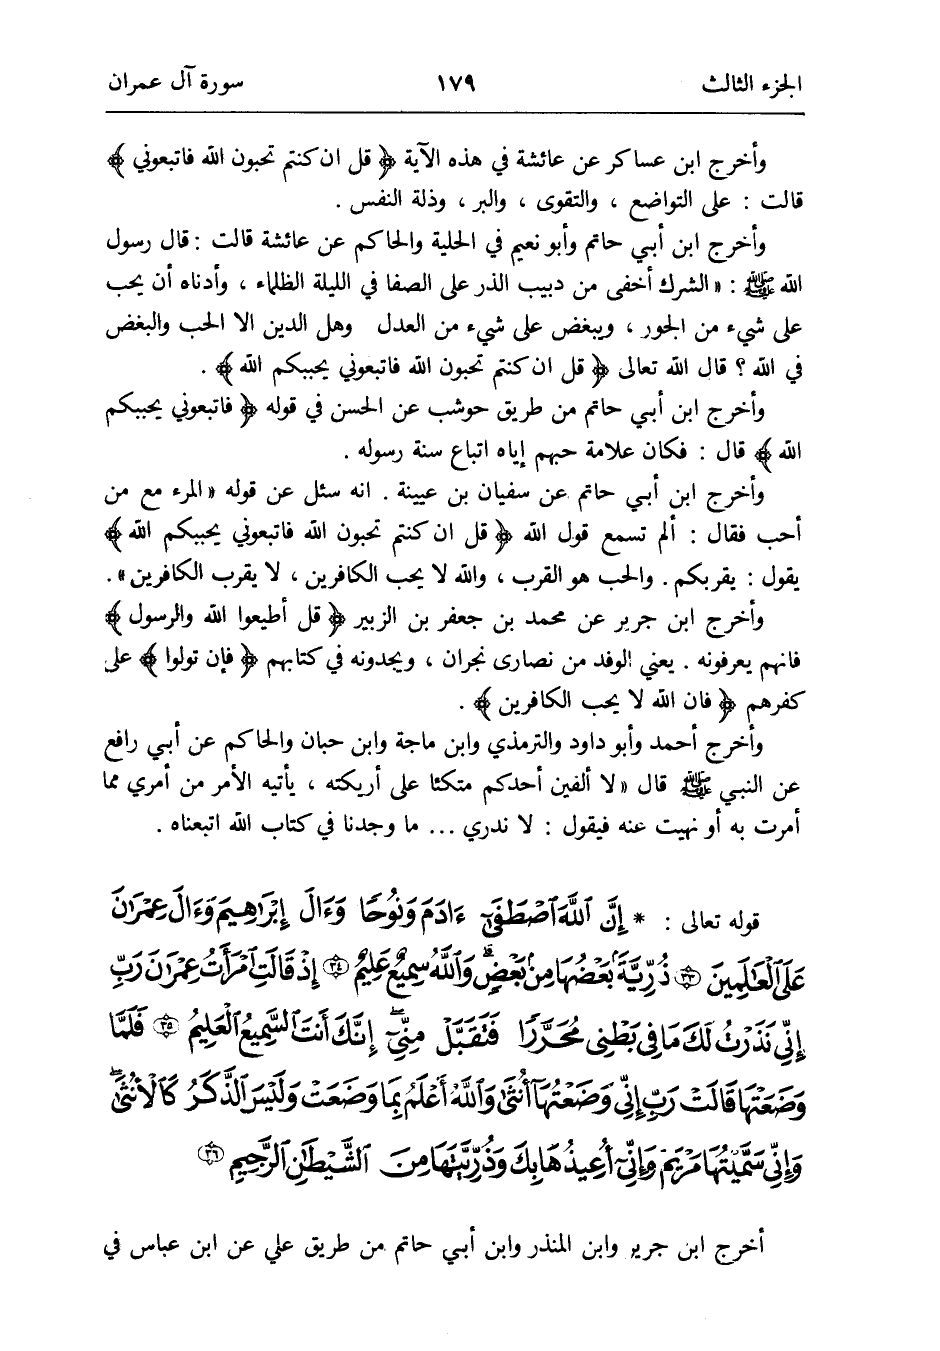 الجزء الثالث ١٧٩ سورة آل عمران
وأخرج ابن عساكر عن عائشة في هذه الآية ﴿ قل ان كنتم تحبون الله فاتبعوني ﴾
قالت : على التواضع ، والتقوى ، والبر ، وذلة النفس .
وأخرج ابن أبي حاتم وأبو نعيم في الحلية والحاكم عن عائشة قالت : قال رسول
الله ﷺ : « الشرك أخفى من دبيب الذر على الصفا في الليلة الظلماء ، وأدناه أن يحب
على شيء من الجور ، ويبغض على شيء من العدل وهل الدين الا الحب والبغض
في الله ؟ قال الله تعالى ﴿ قل ان كنتم تحبون الله فاتبعوني يحببكم الله ﴾ .
وأخرج ابن أبي حاتم من طريق حوشب عن الحسن في قوله ﴿ فاتبعوني يحببكم
الله ﴾ قال : فكان علامة حبهم إياه اتباع سنة رسوله .
وأخرج ابن أبي حاتم عن سفيان بن عيينة . انه سئل عن قوله « المرء مع من
أحب فقال : ألم تسمع قول الله ﴿ قل ان كنتم تحبون الله فاتبعوني يحببكم الله ﴾
يقول : يقربكم . والحب هو القرب ، والله لا يحب الكافرين ، لا يقرب الكافرين » .
وأخرج ابن جرير عن محمد بن جعفر بن الزبير ﴿ قل أطيعوا الله والرسول ﴾
فانهم يعرفونه . يعني الوفد من نصارى نجران ، ويجدونه في كتابهم ﴿ فإن تولوا ﴾ على
كفرهم ﴿ فان الله لا يحب الكافرين ﴾ .
وأخرج أحمد وأبو داود والترمذي وابن ماجة وابن حبان والحاكم عن أبي رافع
عن النبي ﷺ قال « لا ألفين أحدكم متكئا على أريكته ، يأتيه الأمر من أمري مما
أمرت به أو نهيت عنه فيقول : لا ندري ... ما وجدنا في كتاب الله اتبعناه .
قوله تعالى : * إِنَّ ٱللَّهَ ٱصْطَفَىٰٓ ءَادَمَ وَنُوحًا وَءَالَ إِبْرَٰهِيمَ وَءَالَ عِمْرَٰنَ
عَلَى ٱلْعَٰلَمِينَ ٣٣ ذُرِّيَّةَۢ بَعْضُهَا مِنۢ بَعْضٍۗ وَٱللَّهُ سَمِيعٌ عَلِيمٌ ٣٤ إِذْ قَالَتِ ٱمْرَأَتُ عِمْرَٰنَ رَبِّ
إِنِّي نَذَرْتُ لَكَ مَا فِي بَطْنِي مُحَرَّرًا فَتَقَبَّلْ مِنِّيٓۖ إِنَّكَ أَنتَ ٱلسَّمِيعُ ٱلْعَلِيمُ ٣٥ فَلَمَّا
وَضَعَتْهَا قَالَتْ رَبِّ إِنِّي وَضَعْتُهَآ أُنثَىٰ وَٱللَّهُ أَعْلَمُ بِمَا وَضَعَتْ وَلَيْسَ ٱلذَّكَرُ كَٱلْأُنثَىٰۖ
وَإِنِّي سَمَّيْتُهَا مَرْيَمَ وَإِنِّيٓ أُعِيذُهَا بِكَ وَذُرِّيَّتَهَا مِنَ ٱلشَّيْطَٰنِ ٱلرَّجِيمِ ٣٦
أخرج ابن جرير وابن المنذر وابن أبي حاتم من طريق علي عن ابن عباس في